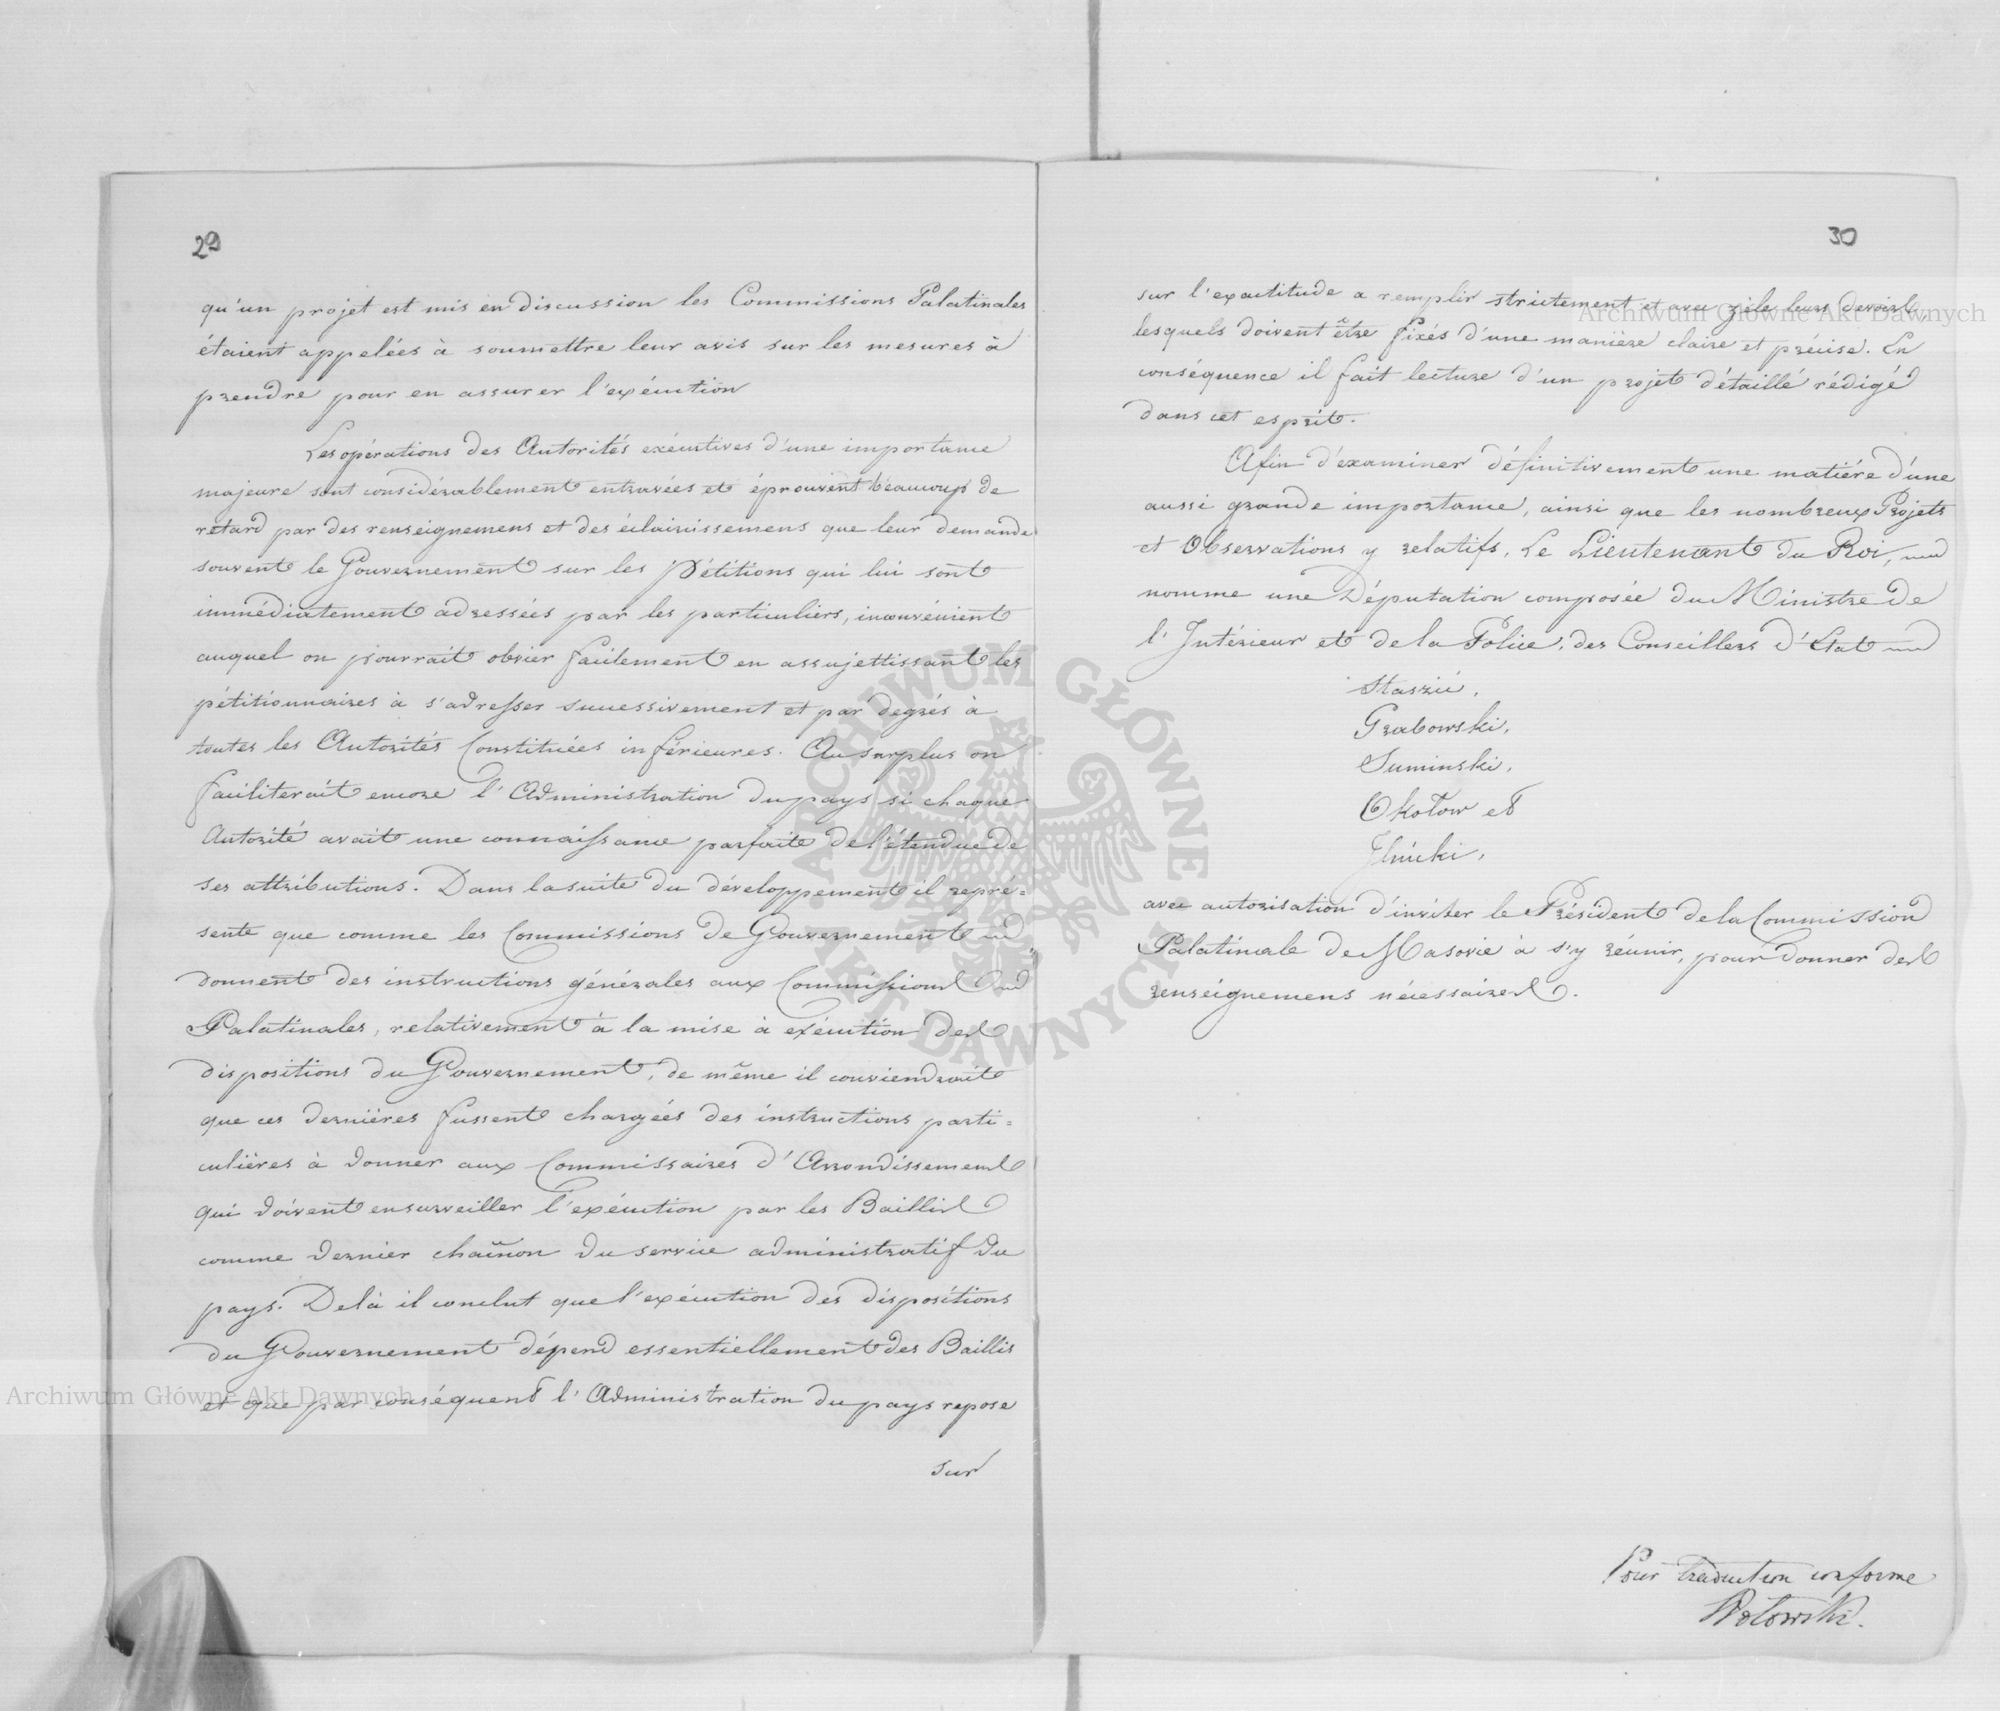 29
qu'un projet est mis en discussion les Commissions Palatinales
étaient appelées à soumettre leur avis sur les mesures à
prendre pour en assurer l'exécution
Les opérations des Autorités exécutives d'une importance
majeure sont considérablement entravées et éprouvent beaucoup de
retard par des renseignemens et des éclaircissemens que leur demande
souvent le Gouvernement sur les Pétitions qui lui sont
immédiatement adressées par les particuliers, inconvénient
auquel on pourrait obvier facilement en assujettissant les
pétitionnaires à s'adresser successivement et par degrés à
toutes les Autorités Constituées inférieures. Au surplus on
faciliterait encore l'Administration du pays si chaque
Autorité avait une connaissance parfaite de l'étendue de
ses attributions. Dans la suite du développement il repré=
sente que comme les Commissions de Gouvernement
donnent des instructions générales aux Commissions
Palatinales, relativement à la mise à exécution des
dispositions du Gouvernement, de même il conviendrait
que ces dernières fussent chargées des instructions parti=
culières à donner aux Commissaires d'Arrondissement
qui doivent en surveiller l'exécution par les Baillis
comme dernier chaînon du service administratif du
pays. Delà il conclut que l'exécution des dispositions
du Gouvernement dépend essentiellement des Baillis
et que par conséquent l'Administration du pays repose
sur
30
sur l'exactitude a remplir strictement et avec zèle leurs devoirs,
lesquels doivent être fixés d'une manière claire et précise. En
conséquence il fait lecture d'un projet détaillé rédigé
dans cet esprit.
Afin d'examiner définitivement une matiére d'une
aussi grande importance, ainsi que les nombreux Projets
et Observations y relatifs, Le Lieutenant du Roi,
nomme une Députation composée du Ministre de
l'Intérieur et de la Police, des Conseillers d'Etat
Staszic,
Grabowski,
Suminski,
Okołow et
Ilnicki,
avec autorisation d'inviter le Président de la Commission
Palatinale de Masovie à s'y réunir, pour donner des
renseignemens nécessaires.
Pour traduction conforme
Archiwum Główne Akt Dawnych
Archiwum Główne Akt Dawnych
ARCHIWUM GŁÓWNE AKT DAWNYCH